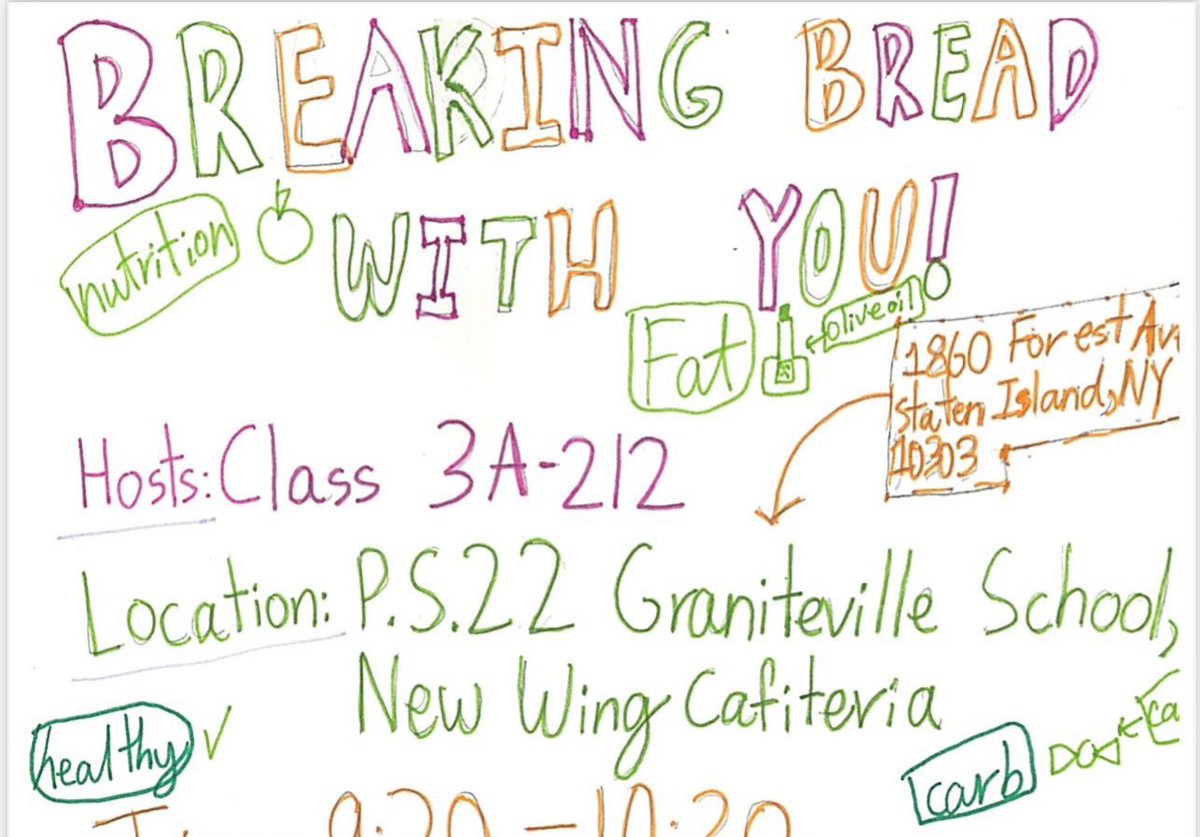 BREAKING BREAD
nutrition
WITH YOU!
Fat
olive oil
1860 Forest Av
Staten Island, NY
10303
Hosts: Class 3A-212
Location: P.S.22 Graniteville School,
New Wing Cafiteria
healthy
carb
ca
9:20 - 10:20